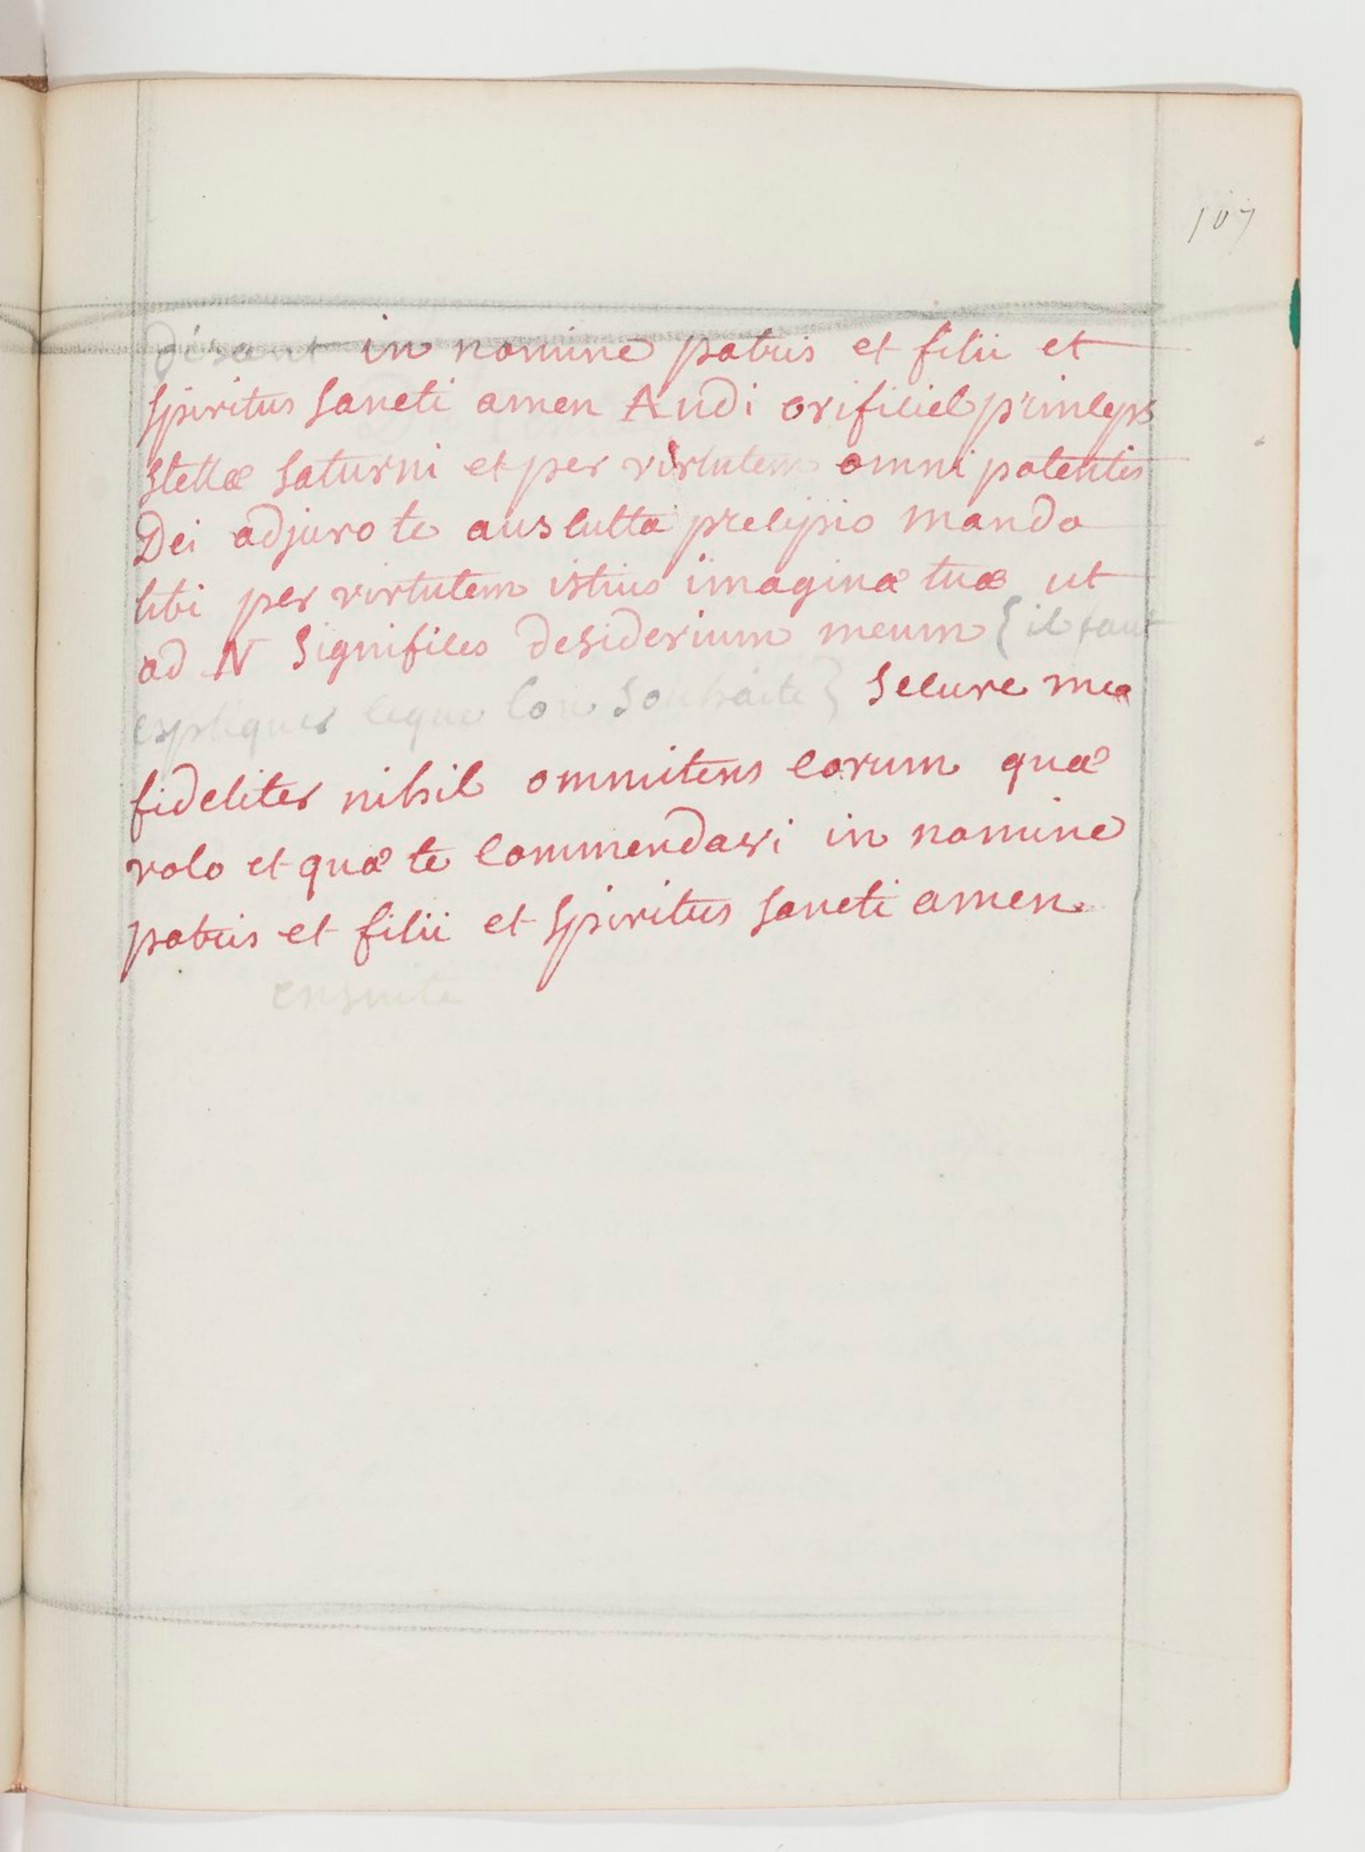 107
disant in nomine patris et filii et
spiritus sancti amen Audi orificiel princeps
stellæ saturni et per virtutem omni potentis
Dei adjuro te ausculta precipio mando
tibi per virtutem istius imaginæ tuæ ut
ad N significes desiderium meum {il faut
expliquer ceque lon souhaite} secure mea
fideliter nihil ommitens eorum quæ
volo et quæ te commendavi in nomine
patris et filii et spiritus sancti amen
ensuite